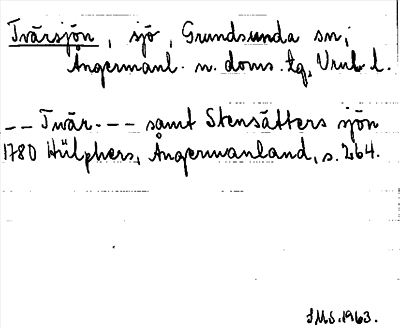 Tvärsjön, sjö, Grundsunda sn,
Ångermanl. n. doms. tg, Vnrb l.
-- Tvär --- samt Stensätters sjön
1780 Hülphers, Ångermanland, s. 264.
SMS. 1963.